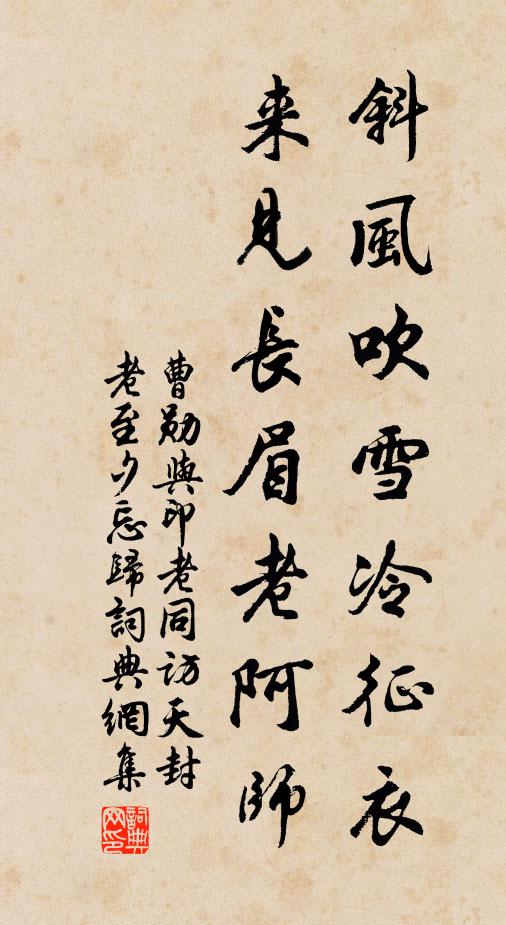 斜風吹雪冷征衣
来見長眉老阿師
曹勛與印老同訪天封
老至夕忘歸詞典網集
詞典网印